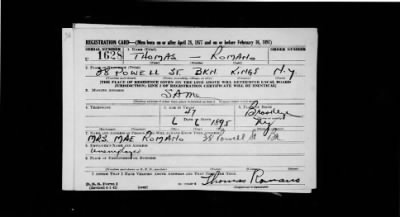 REGISTRATION CARD—(Men born on or after April 28, 1877 and on or before February 16, 1897)
SERIAL NUMBER
1. NAME (Print)
ORDER NUMBER
U 1628
THOMAS — ROMANO
(First) (Middle) (Last)
2. PLACE OF RESIDENCE (Print)
38 POWELL ST. BKN KINGS N.Y.
(Number and street) (Town, township, village, or city) (County) (State)
[THE PLACE OF RESIDENCE GIVEN ON THE LINE ABOVE WILL DETERMINE LOCAL BOARD
JURISDICTION; LINE 2 OF REGISTRATION CERTIFICATE WILL BE IDENTICAL]
3. MAILING ADDRESS
SAME
4. TELEPHONE
5. AGE IN YEARS
6. PLACE OF BIRTH
Brooklyn
DATE OF BIRTH
6 6 1895
NY
7. NAME AND ADDRESS OF PERSON WHO WILL ALWAYS KNOW YOUR ADDRESS
MRS. MAE ROMANO 38 Powell St
8. EMPLOYER'S NAME AND ADDRESS
Unemployed
9. PLACE OF EMPLOYMENT OR BUSINESS
I AFFIRM THAT I HAVE VERIFIED ABOVE ANSWERS AND THAT THEY ARE TRUE.
D. S. S. Form 1
Thomas Romano